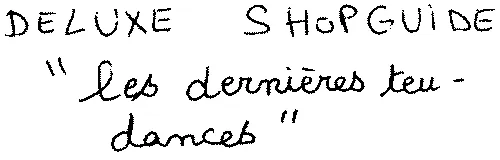 DELUXE SHOPGUIDE
"les dernières ten-
dances"